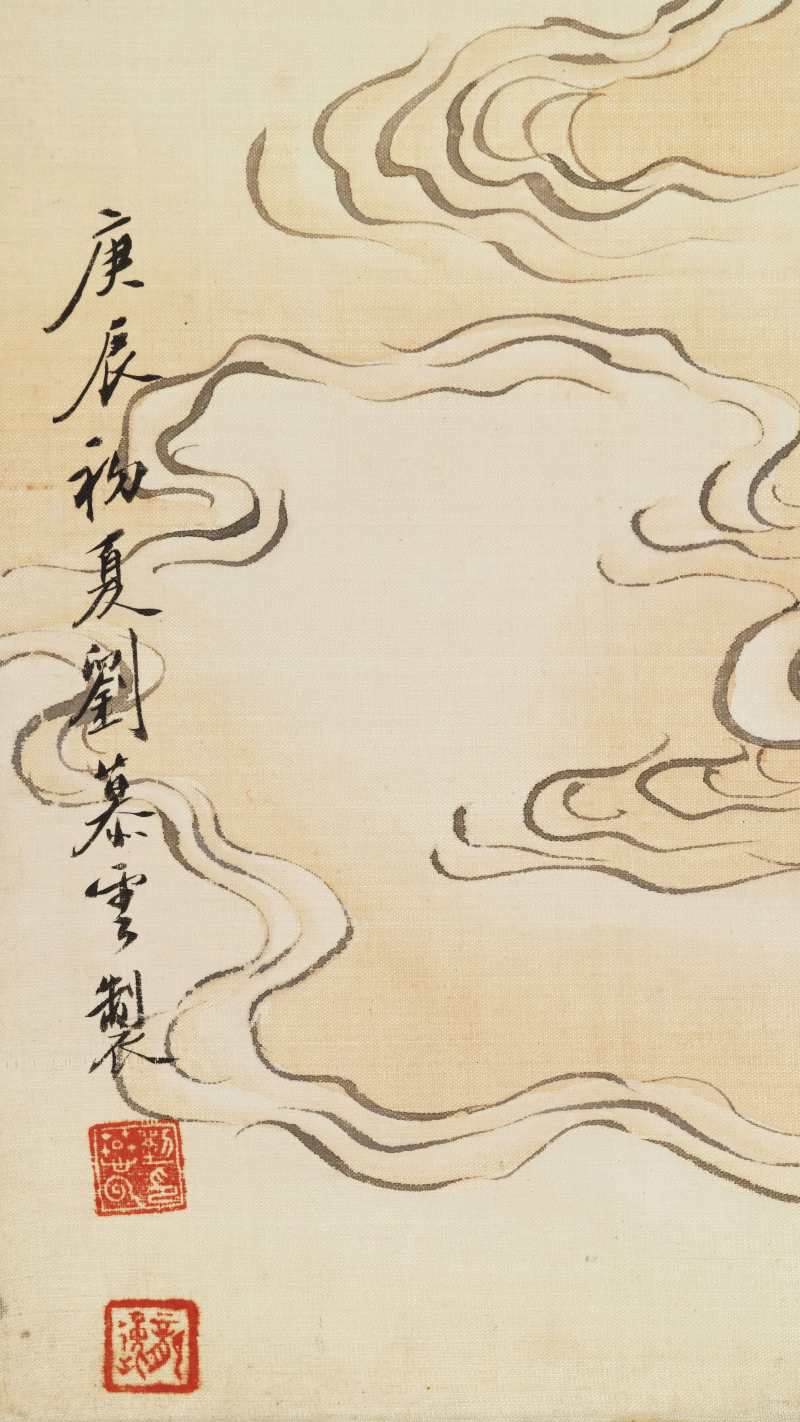 庚辰初夏劉慕雲製